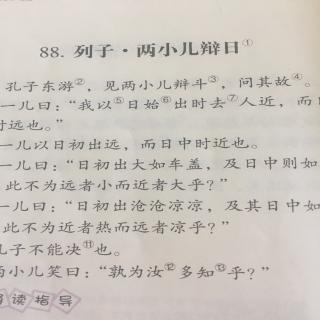 88. 列子·两小儿辩日①
孔子东游②，见两小儿辩斗③，问其故④。
一儿曰：“我以⑤日始⑥出时去⑦人近，而日
时远也。”
一儿以日初出远，而日中时近也。
一儿曰：“日初出大如车盖，及日中则如
此不为远者小而近者大乎？”
一儿曰：“日初出沧沧凉凉，及其日中如
此不为近者热而远者凉乎？”
孔子不能决⑪也。
两小儿笑曰：“孰为汝⑫多知⑬乎？”
阅读指导